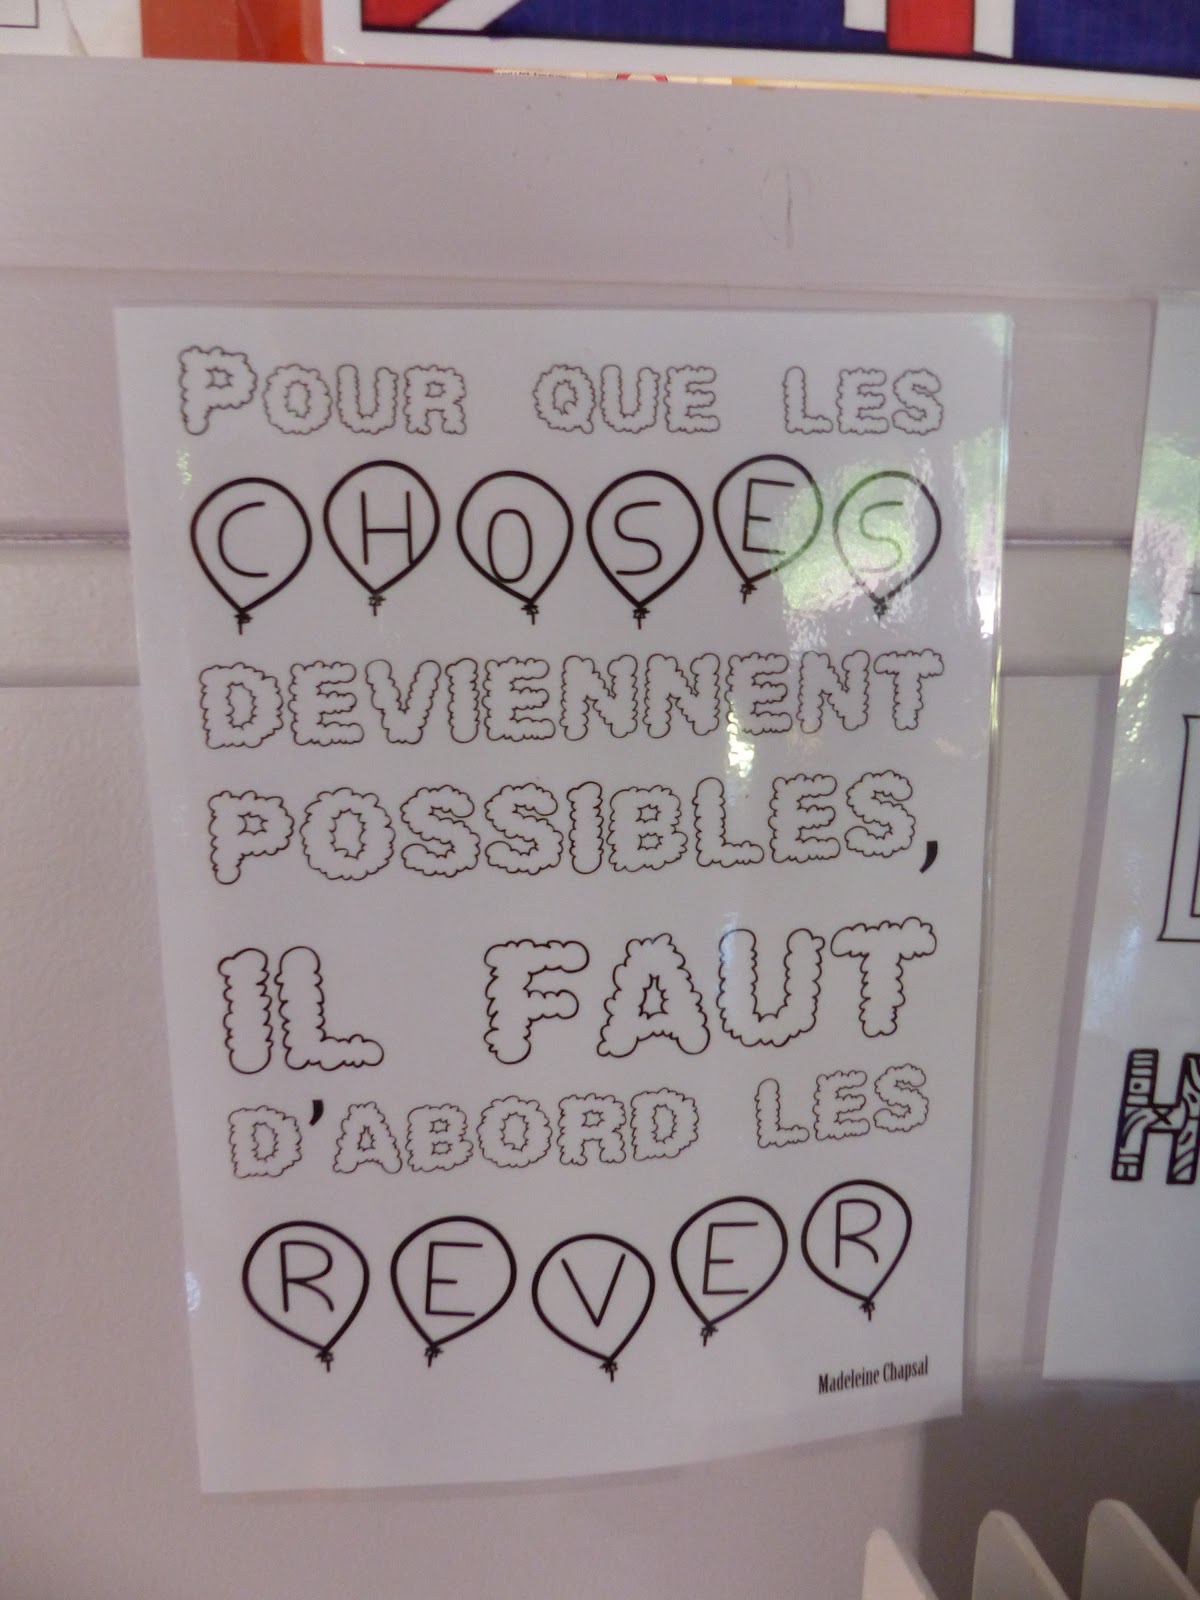 POUR QUE LES
CHOSES
DEVIENNENT
POSSIBLES,
IL FAUT
D'ABORD LES
REVER
Madeleine Chapsal
H